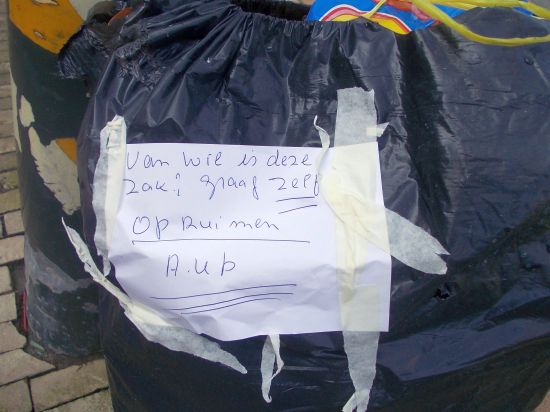 Van wie is deze
zak? graag zelf
opRuimen
A.U.b